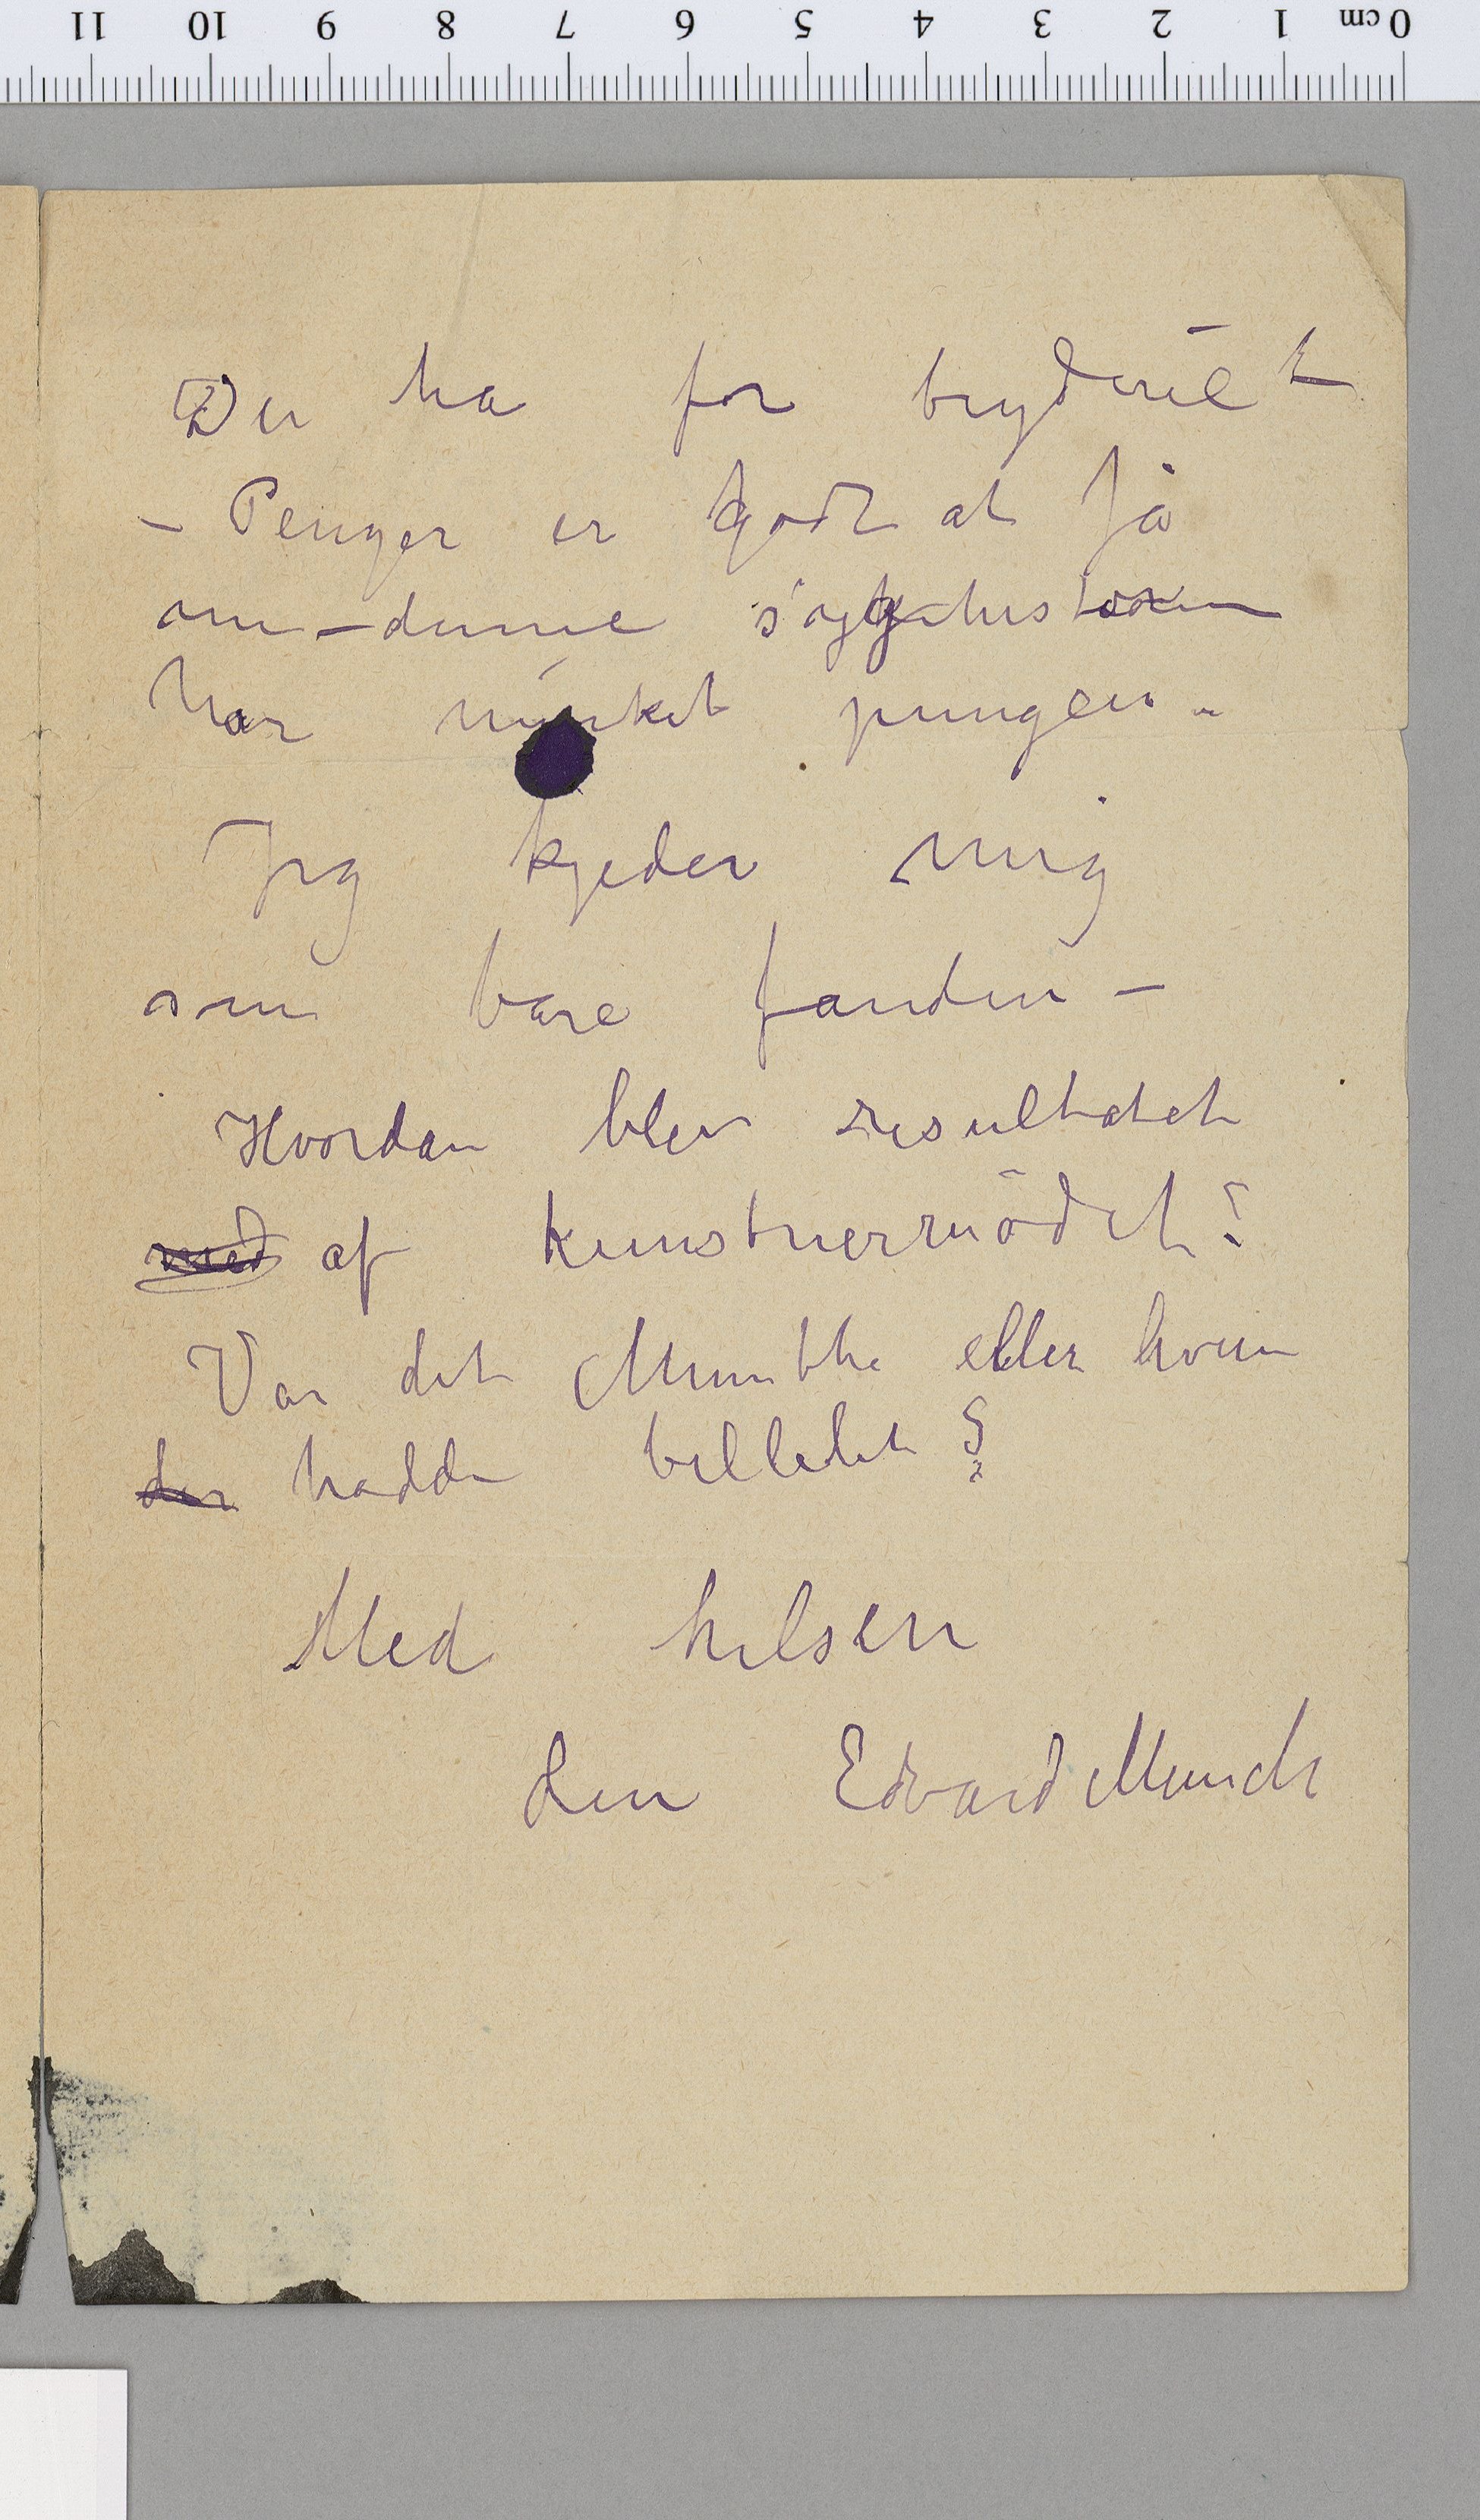 0 cm 1 2 3 4 5 6 7 8 9 10 11
Du ha for bryderiet
– Penger er godt at få
denne
har pungen –
Jeg kjeder mig
som bare fanden –
Hvordan blev resultatet
med af kunstnermödet?
Var det Munthe eller hvem
der hadde billedet?
Med hilsen
din Edvard Munch